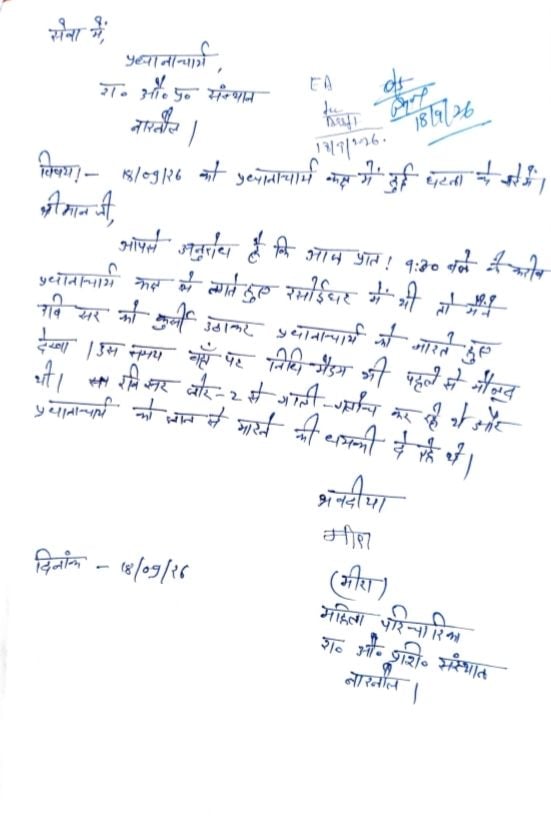 सेवा में,
प्रधानाचार्य,
रा० औ० प्र० संस्थान
नारनौल।
EA
18/9/26
विषय:- 18/09/26 को प्रधानाचार्य कक्ष में हुई घटना के बारे में।
श्री मान जी,
आपसे अनुरोध है कि आज प्रात: 9:30 बजे के करीब
प्रधानाचार्य कक्ष के लगते हुए रसोईघर में थी तो मैंने
रवि सर को कुर्सी उठाकर प्रधानाचार्य को मारते हुए
देखा। उस समय वहाँ पर निधि मैडम भी पहले से मौजूद
थी। रवि सर जोर-2 से गाली-गलौच कर रहे थे और
प्रधानाचार्य को जान से मारने की धमकी दे रहे थे।
भवदीया
मीरा
(मीरा)
दिनांक - 18/09/26
महिला परिचारिका
रा० औ० प्रशि० संस्थान
नारनौल।